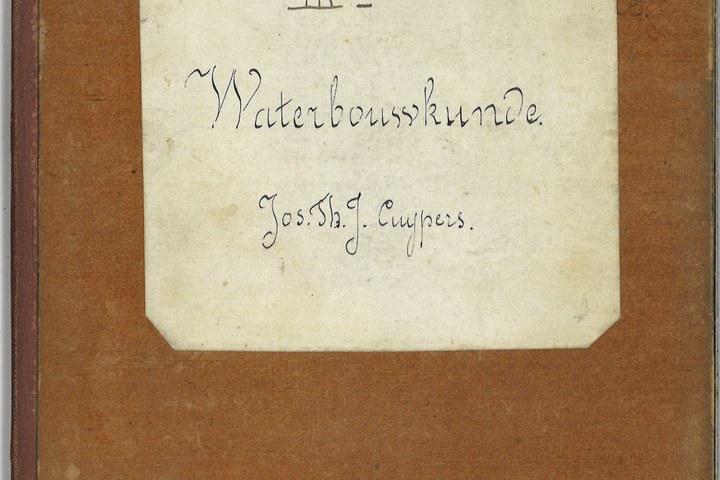 Waterbouwkunde.
Jos. Th. J. Cuypers.